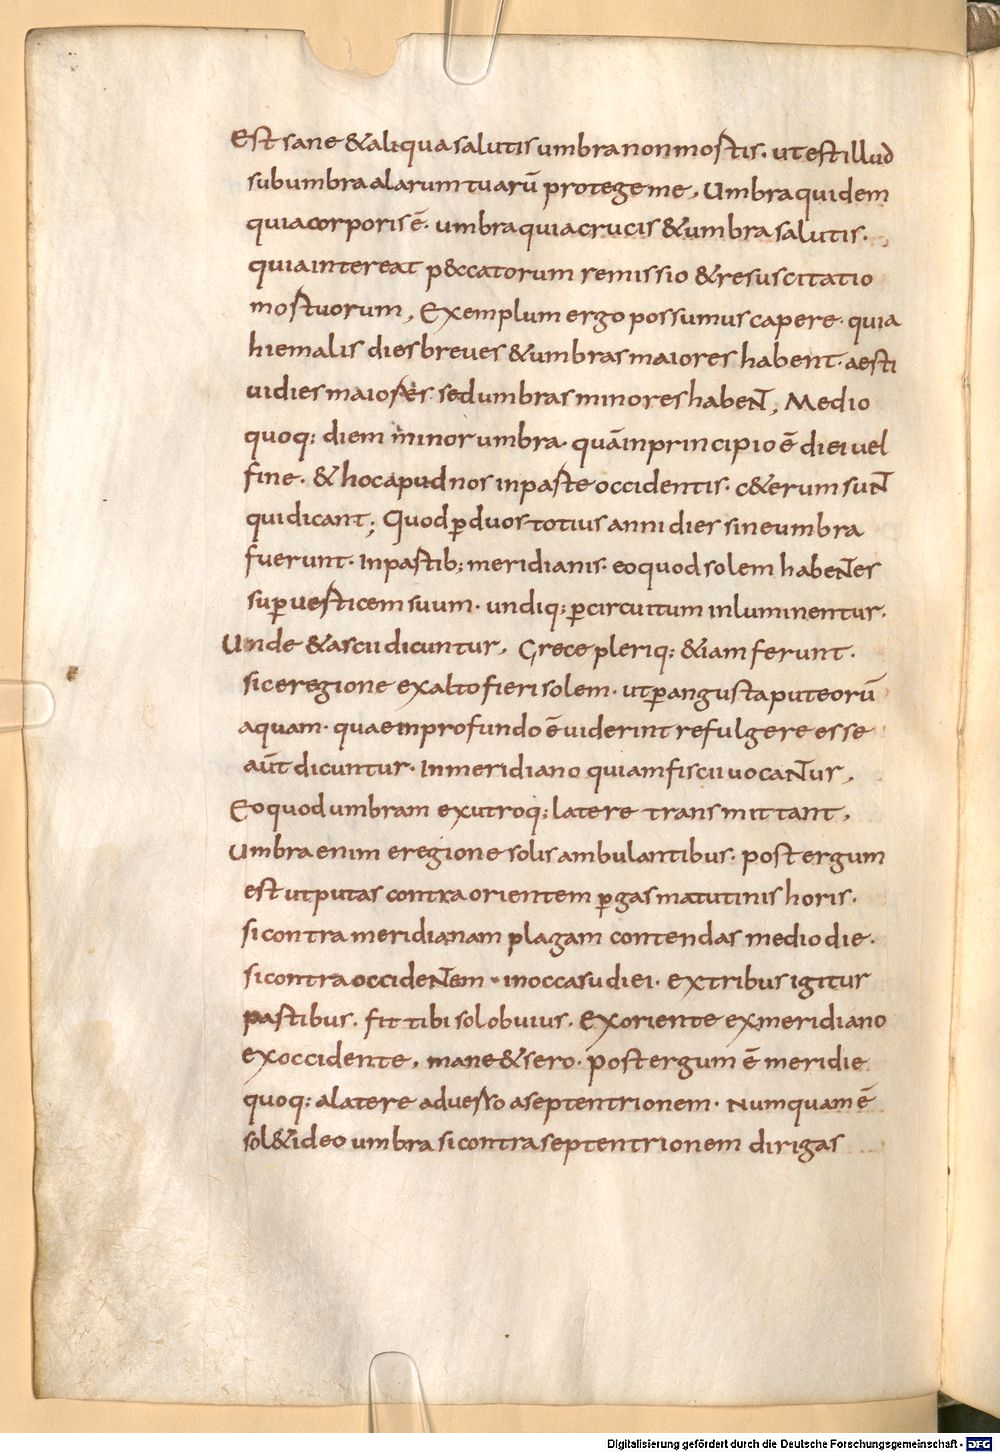 Est sane & aliqua salutis umbra non mortis· ut est illud
sub umbra alarum tuarū protege me, Umbra quidem
quia corporis ē· umbra quia crucis & umbra salutis·
quia inter eat p&ccatorum remissio & resuscitatio
mortuorum, Exemplum ergo possumus capere· quia
hiemalis dies breues & umbras maiores habent· aesti
ui dies maiores sed umbras minores habent, Medio
quoq: diem minor umbra· quā in principio ē diei uel
fine· & hoc apud nos in parte occidentis· c&erum sunt
qui dicant; Quod p̱ duos totius anni dies sine umbra
fuerunt· In partib; meridianis· eo quod solem habentes
sup̱ uerticem suum· undiq: p̱ circuitum inluminentur·
Unde & ascii dicuntur, Grece pleriq: &iam ferunt·
sic e regione ex alto fieri solem· ut p̱ angusta puteorū
aquam· quae in profundo ē uiderint refulgere esse
aūt dicuntur· In meridiano qui amfiscii uocantur,
Eo quod umbram ex utroq: latere transmittant,
Umbra enim e regione solis ambulantibus· post ergum
est ut putas contra orientem p̱gas matutinis horis·
si contra meridianam plagam contendas medio die·
si contra occidentem· in occasu diei· ex tribus igitur
partibus· fit tibi sol obuius· Ex oriente ex meridiano
ex occidente, mane & sero· post ergum ē meridie
quoq: a latere aduerso a septentrionem· Numquam ē
sol & ideo umbra si contra septentrionem dirigas
Digitalisierung gefördert durch die Deutsche Forschungsgemeinschaft - DFG